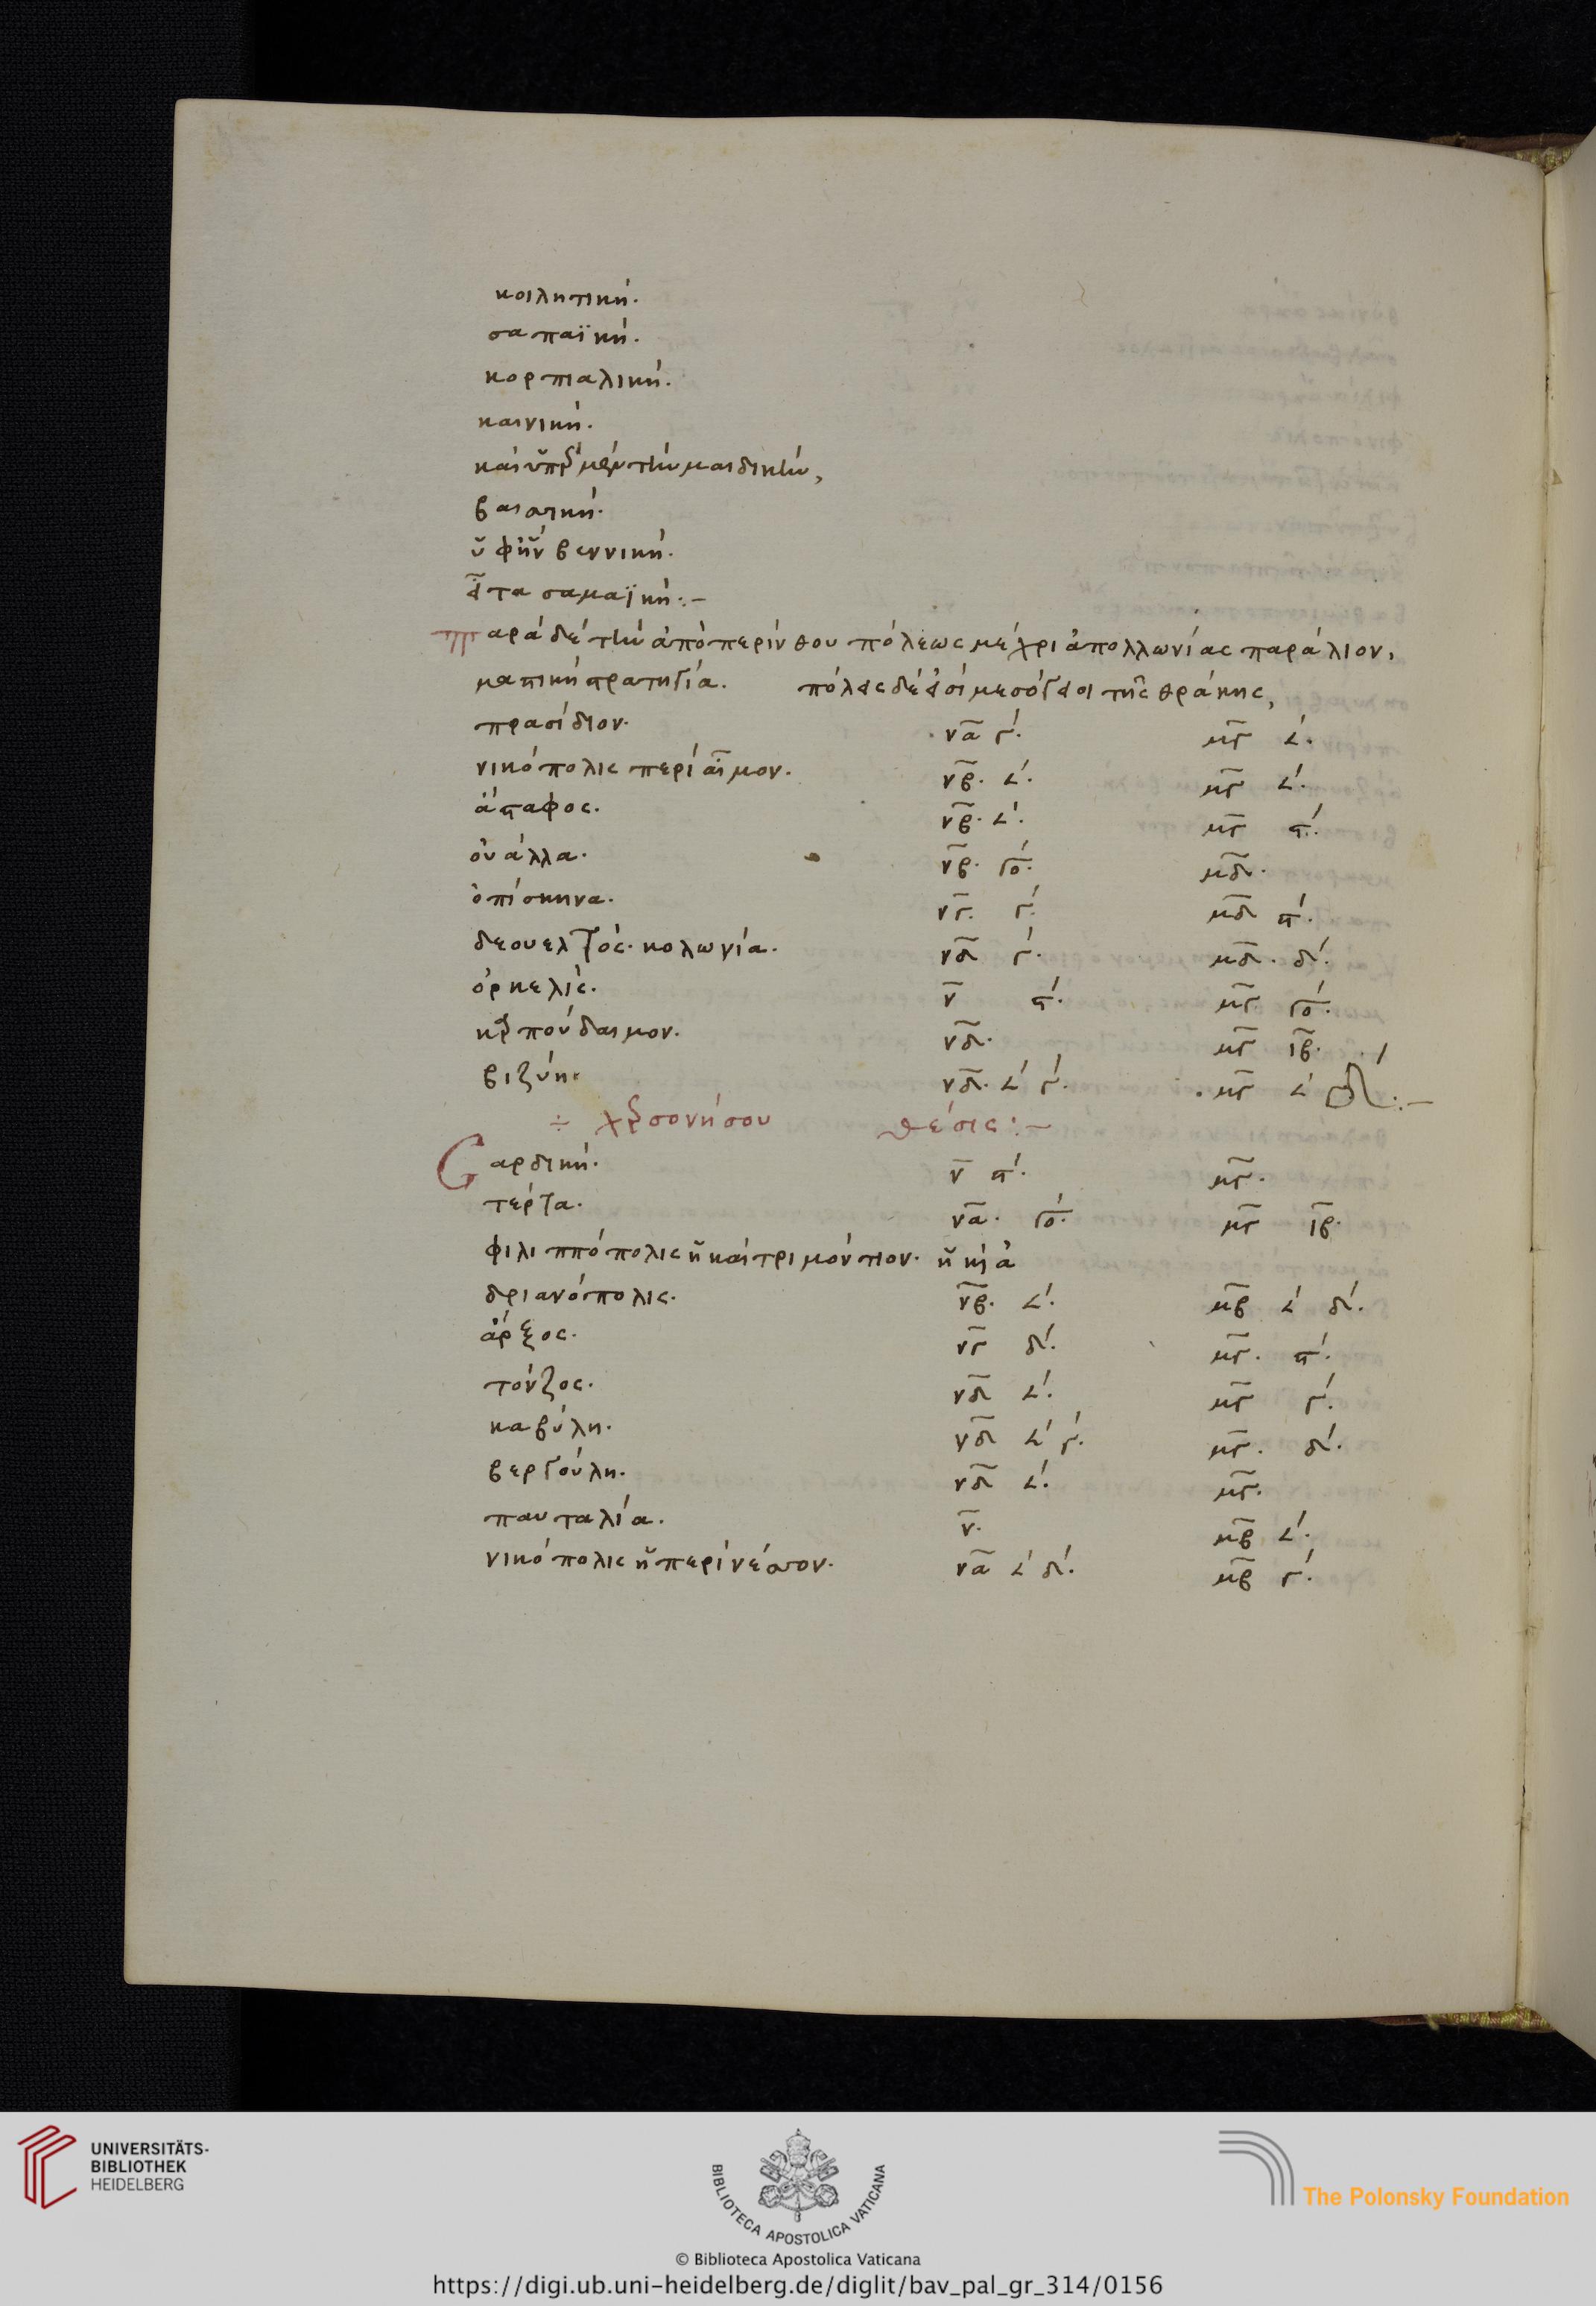 κοιλητική.
σαπαϊκή.
κορπιαλική.
καινική.
καὶ ὑπὲρ μὲν τὴν μαιδικὴν,
βαιστική.
ὑφ' ἣν βεννική.
εἶτα σαμαϊκή:-
παρὰ δὲ τὴν ἀπὸ περίνθου πόλεως μέχρι ἀπολλωνίας παράλιον,
ἀστικὴ στρατηγία. πόλεις δέ εἰσι μεσόγειοι τῆς θράκης,
πρασίδιον. να γ'. μγ 𐅵'.
νικόπολις περὶ αἷμον. νβ. 𐅵'. μγ 𐅵'.
ἄσταφος. νβ. 𐅵'. μγ ϛ'.
οὐάλλα. νβ. γο'. μδ.
ὀπίσκηνα. νγ. γ'. μδ ϛ'.
δεουελτός. κολωνία. νδ γ'. μδ. δ'.
ὀρκελίς. ν ϛ'. μγ γο'.
καρπούδαιμον. νδ. μγ ιβ.
βιζύη. νδ. 𐅵' γ'. μγ 𐅵' δ':-
÷ χερσονήσου θέσις:-
Σαρδική. ν ϛ'. μγ.
τέρτα. να. γο'. μγ ιβ.
φιλιππόπολις ἡ καὶ τριμόντιον. ἡ καὶ ἀ
δριανόπολις. νβ. 𐅵'. μβ 𐅵' δ'.
ἄρξος. νγ δ'. μγ. ϛ'.
τόνζος. νδ 𐅵'. μγ γ'.
καβύλη. νδ 𐅵' γ'. μγ. δ'.
βεργούλη. νδ 𐅵'. μγ.
παυταλία. ν. μβ 𐅵'.
νικόπολις ἡ περὶ νέστον. να 𐅵' δ'. μβ γ'.
UNIVERSITÄTS-
BIBLIOTHEK
HEIDELBERG
BIBLIOTECA APOSTOLICA VATICANA
© Biblioteca Apostolica Vaticana
The Polonsky Foundation
https://digi.ub.uni-heidelberg.de/diglit/bav_pal_gr_314/0156